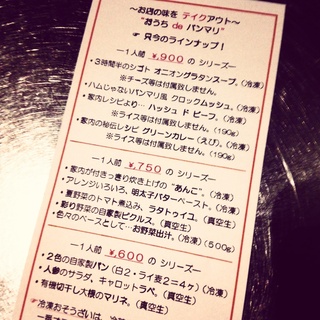 〜お店の味を テイクアウト〜
"おうち de パンマリ"
☞ 只今のラインナップ!
―1人前 ¥,900 の シリーズ―
・3時間半のシゴト オニオングラタンスープ。(冷凍)
※チーズ等は付属致しません。
・ハムじゃないパンマリ風 クロックムッシュ。(冷凍)
・家内レシピより… ハッシュ ド ビーフ。(冷凍)
※ライス等は付属致しません。(190g)
・家内の秘伝レシピ グリーンカレー(えび)。(冷凍)
※ライス等は付属致しません。(190g)
―1人前 ¥,750 の シリーズ―
・家内が付きっきり炊き上げの "あんこ"。(冷凍)
・アレンジいろいろ、明太子バターペースト。(冷凍)
・夏野菜のトマト煮込み、ラタトゥイユ。(真空生)
・彩り野菜の自家製ピクルス。(真空生)
・色々のベースとして…お野菜出汁。(冷凍)(500g)
―1人前 ¥,600 の シリーズ―
・2色の自家製パン(白2・ライ麦2=4ヶ)(冷凍)
・人参のサラダ、キャロットラペ。(真空生)
・有機切干し大根のマリネ。(真空生)
☞冷凍おそうざいは、